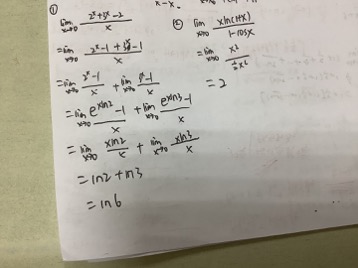 ①
lim x→0 (2^x+3^x-2)/x
=lim x→0 (2^x-1+3^x-1)/x
=lim x→0 (2^x-1)/x + lim x→0 (3^x-1)/x
=lim x→0 (e^(xln2)-1)/x + lim x→0 (e^(xln3)-1)/x
=lim x→0 xln2/x + lim x→0 xln3/x
=ln2+ln3
=ln6
② lim x→0 xln(1+x)/(1-cosx)
=lim x→0 x²/(½x²)
=2